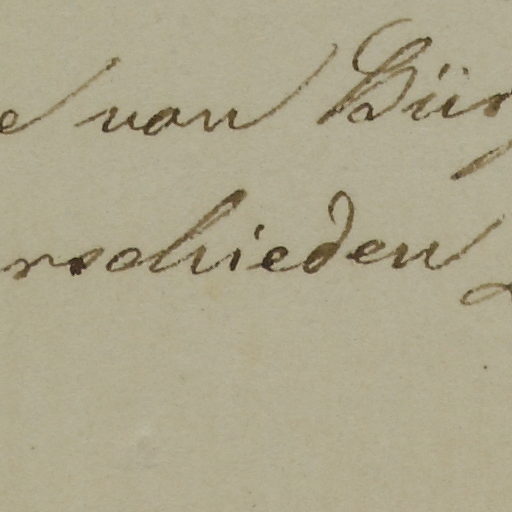 e von Bür
rschieden